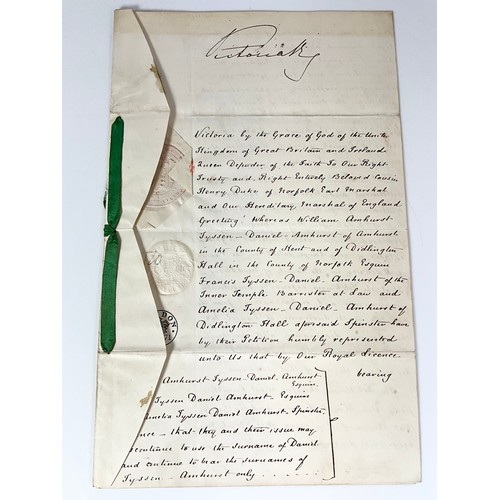 Victoria R
Victoria by the Grace of God of the Unite
Kingdom of Great Britain and Ireland
Queen Defender of the Faith To Our Right
Trusty and Right Entirely Beloved Cousin
Henry Duke of Norfolk Earl Marshal
and Our Hereditary Marshal of England
Greeting! Whereas William Amhurst
Tyssen-Daniel-Amhurst of Amhurst
in the County of Kent and of Didlington
Hall in the County of Norfolk Esquire
Francis Tyssen-Daniel-Amhurst of the
Inner Temple Barrister at Law and
Amelia Tyssen-Daniel-Amhurst of
Didlington Hall aforesaid Spinster have
by their Petition humbly represented
unto Us that by Our Royal Licence
bearing
Amhurst Tyssen-Daniel-Amhurst
Esquire
Tyssen Daniel Amhurst Esquire
melia Tyssen Daniel Amhurst Spinster
nce - that they and their issue may
continue to use the surname of Daniel
and continue to bear the surnames of
Tyssen-Amhurst only
DON